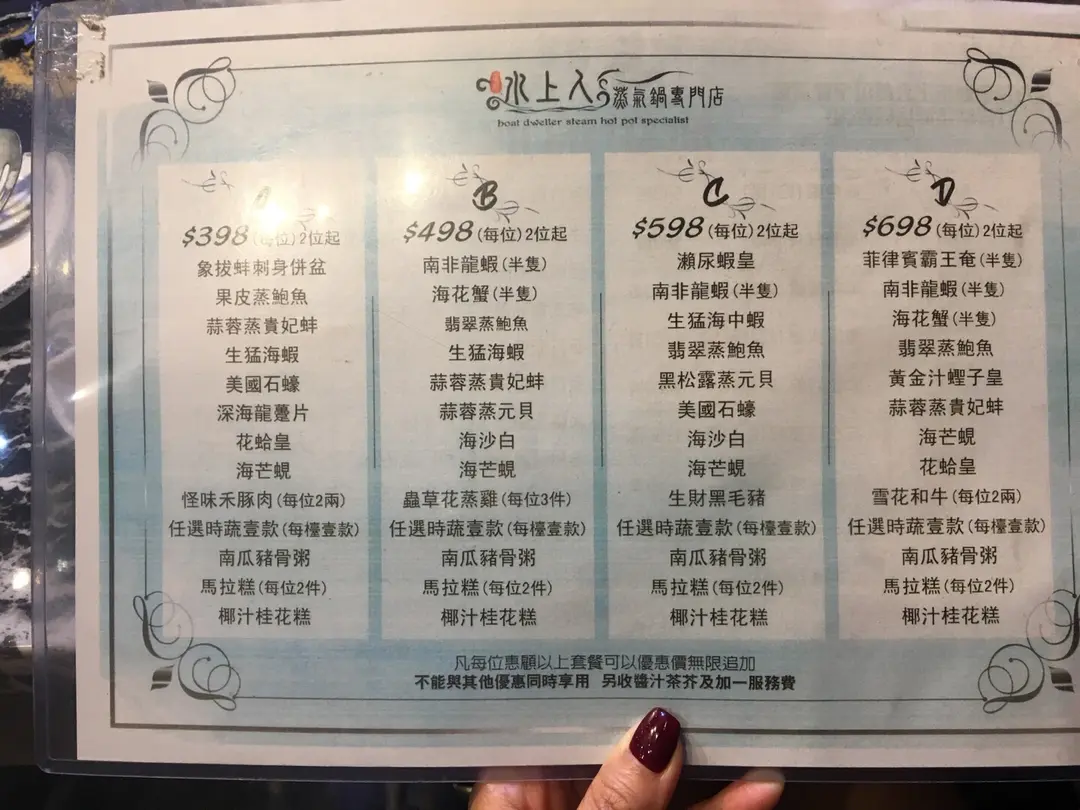 水上人蒸氣鍋專門店
boat dweller steam hot pot specialist
$398(每位)2位起
象拔蚌刺身併盆
果皮蒸鮑魚
蒜蓉蒸貴妃蚌
生猛海蝦
美國石蠔
深海龍躉片
花蛤皇
海芒蜆
怪味禾豚肉(每位2兩)
任選時蔬壹款(每檯壹款)
南瓜豬骨粥
馬拉糕(每位2件)
椰汁桂花糕
B
$498(每位)2位起
南非龍蝦(半隻)
海花蟹(半隻)
翡翠蒸鮑魚
生猛海蝦
蒜蓉蒸貴妃蚌
蒜蓉蒸元貝
海沙白
海芒蜆
蟲草花蒸雞(每位3件)
任選時蔬壹款(每檯壹款)
南瓜豬骨粥
馬拉糕(每位2件)
椰汁桂花糕
C
$598(每位)2位起
瀨尿蝦皇
南非龍蝦(半隻)
生猛海中蝦
翡翠蒸鮑魚
黑松露蒸元貝
美國石蠔
海沙白
海芒蜆
生財黑毛豬
任選時蔬壹款(每檯壹款)
南瓜豬骨粥
馬拉糕(每位2件)
椰汁桂花糕
D
$698(每位)2位起
菲律賓霸王奄(半隻)
南非龍蝦(半隻)
海花蟹(半隻)
翡翠蒸鮑魚
黃金汁蟶子皇
蒜蓉蒸貴妃蚌
海芒蜆
花蛤皇
雪花和牛(每位2兩)
任選時蔬壹款(每檯壹款)
南瓜豬骨粥
馬拉糕(每位2件)
椰汁桂花糕
凡每位惠顧以上套餐可以優惠價無限追加
不能與其他優惠同時享用 另收醬汁茶芥及加一服務費